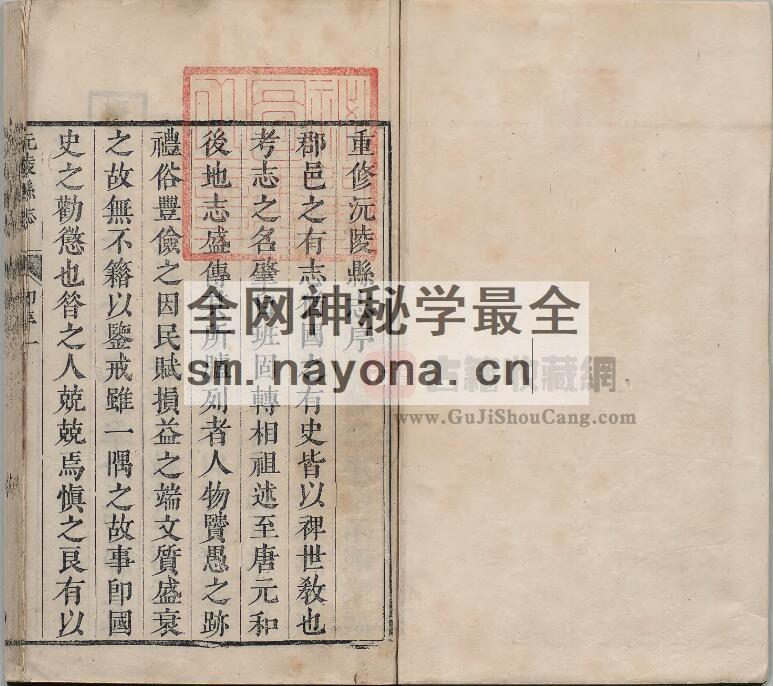 重修沅陵縣志序
郡邑之有志國之有史皆以裨世敎也
考志之名肇自班固轉相祖述至唐元和
後地志盛傳所列者人物賢愚之跡
禮俗豐儉之因民賦損益之端文質盛衰
之故無不籍以鑒戒雖一隅之故事卽國
史之勸懲也昝之人兢兢焉愼之良有以
沅陵縣志
全网神秘学最全
sm.nayona.cn
古籍收藏網
www.GuJiShouCang.com